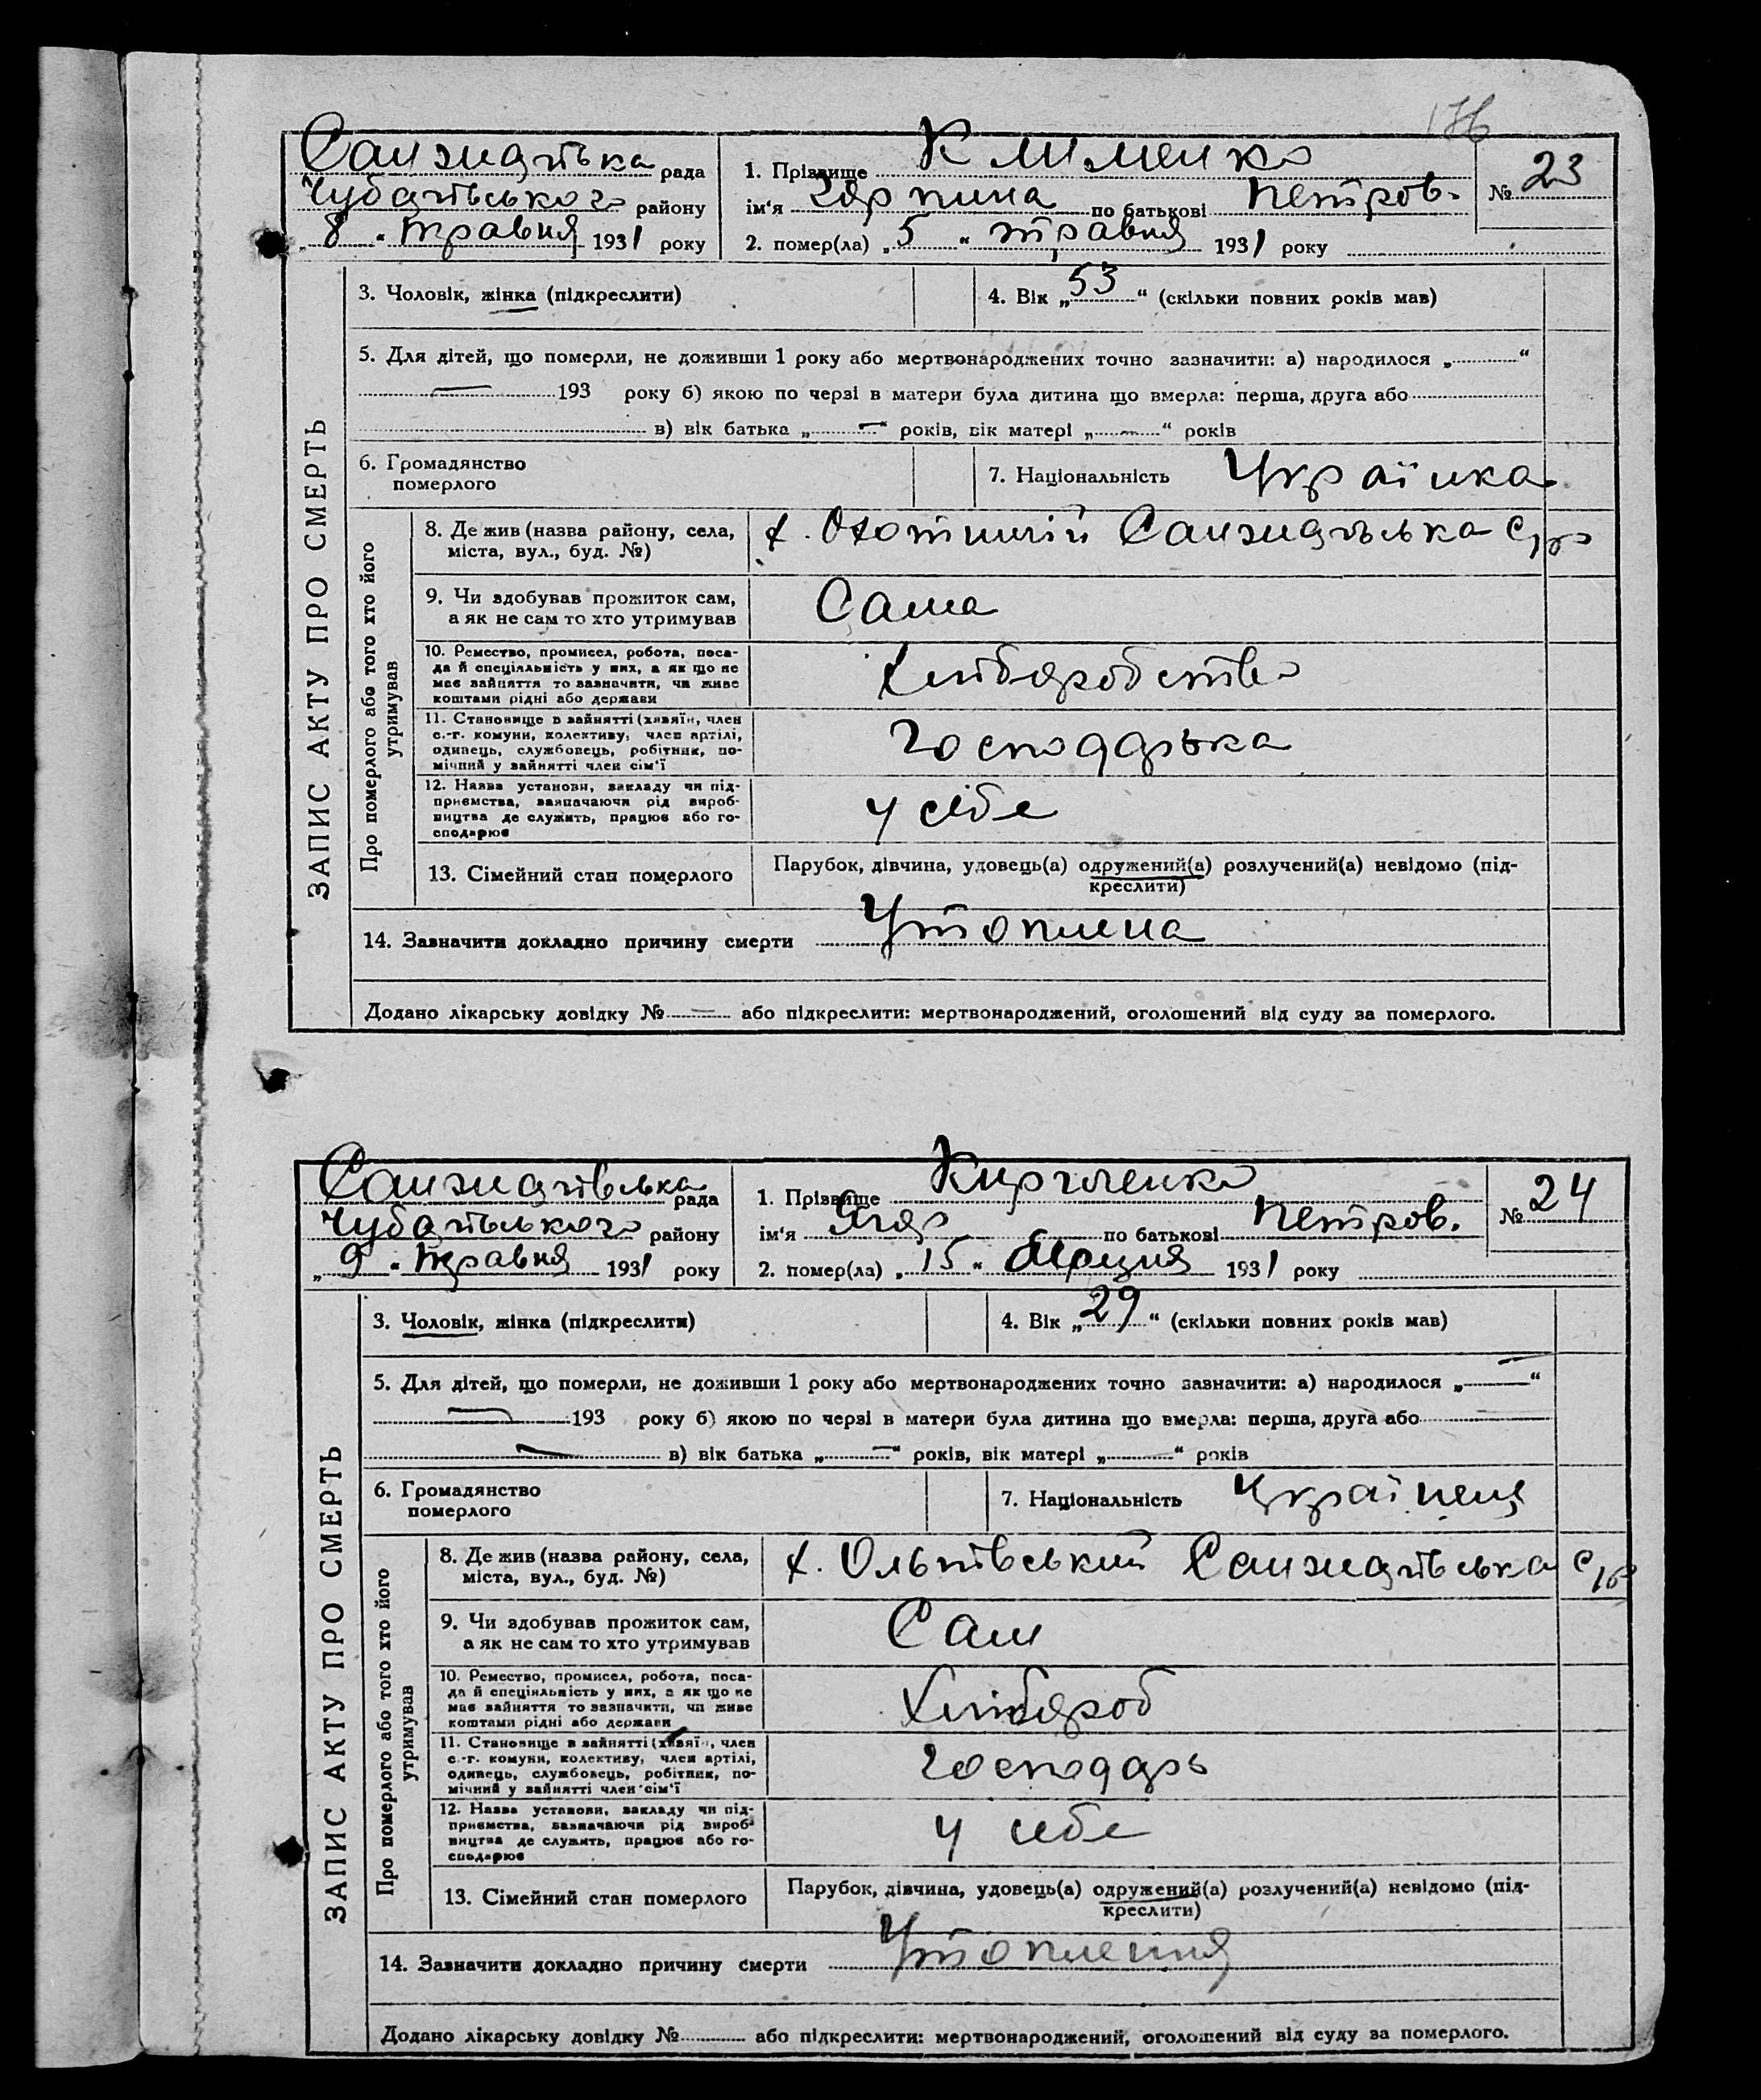 176
рада
1. Прізвище Клименко
№ 23
району
ім'я
по батькові Петров.
„ 8 " травня 1931 року
2. помер(ла) „ 5 " травня 1931 року
ЗАПИС АКТУ ПРО СМЕРТЬ
3. Чоловік, жінка (підкреслити)
4. Вік „ 53 " (скільки повних років мав)
5. Для дітей, що померли, не доживши 1 року або мертвонароджених точно зазначити: а) народилося „ "
— 193 року б) якою по черзі в матери була дитина що вмерла: перша, друга або
в) вік батька „ — " років, вік матері „ — " років
6. Громадянство
померлого
7. Національність Українка
Про померлого або того хто його
утримував
8. Де жив (назва району, села,
міста, вул., буд. №)
х.
9. Чи здобував прожиток сам,
а як не сам то хто утримував
Сама
10. Ремество, промисел, робота, поса-
да й спеціяльність у них, а як що не
має зайняття то зазначити, чи живе
коштами рідні або держави
Хліборобство
11. Становище в зайнятті (хазяїн, член
с.-г. комуни, колективу, член артілі,
одинець, службовець, робітник, по-
мічний у зайнятті член сім'ї
Господарька
12. Назва установи, закладу чи під-
приємства, зазначаючи рід вироб-
ництва де служить, працює або го-
сподарює
у себе
13. Сімейний стан померлого
Парубок, дівчина, удовець(а) одружений(а) розлучений(а) невідомо (під-
креслити)
14. Зазначити докладно причину смерти Утоплена
Додано лікарську довідку № — або підкреслити: мертвонароджений, оголошений від суду за померлого.
рада
1. Прізвище Кириченко
№ 24
району
ім'я
по батькові Петров.
„ 9 " травня 1931 року
2. помер(ла) „ 15 " 1931 року
ЗАПИС АКТУ ПРО СМЕРТЬ
3. Чоловік, жінка (підкреслити)
4. Вік „ 29 " (скільки повних років мав)
5. Для дітей, що померли, не доживши 1 року або мертвонароджених точно зазначити: а) народилося „ — "
— 193 року б) якою по черзі в матери була дитина що вмерла: перша, друга або
— в) вік батька „ — " років, вік матері „ — " років
6. Громадянство
померлого
7. Національність Українець
Про померлого або того хто його
утримував
8. Де жив (назва району, села,
міста, вул., буд. №)
х. Ольгівський
9. Чи здобував прожиток сам,
а як не сам то хто утримував
Сам
10. Ремество, промисел, робота, поса-
да й спеціяльність у них, а як що не
має зайняття то зазначити, чи живе
коштами рідні або держави
Хлібороб
11. Становище в зайнятті (хазяїн, член
с.-г. комуни, колективу, член артілі,
одинець, службовець, робітник, по-
мічний у зайнятті член сім'ї
Господарь
12. Назва установи, закладу чи під-
приємства, зазначаючи рід вироб-
ництва де служить, працює або го-
сподарює
у себе
13. Сімейний стан померлого
Парубок, дівчина, удовець(а) одружений(а) розлучений(а) невідомо (під-
креслити)
14. Зазначити докладно причину смерти Утоплення
Додано лікарську довідку № або підкреслити: мертвонароджений, оголошений від суду за померлого.